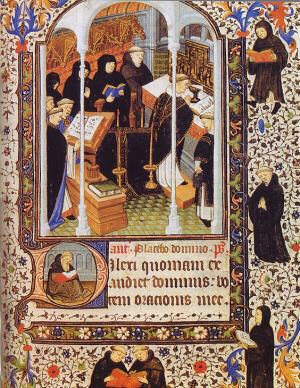 ant. Placebo domino. ps
Dilexi quoniam ex
audiet dominus: vo
cem orationis mee.